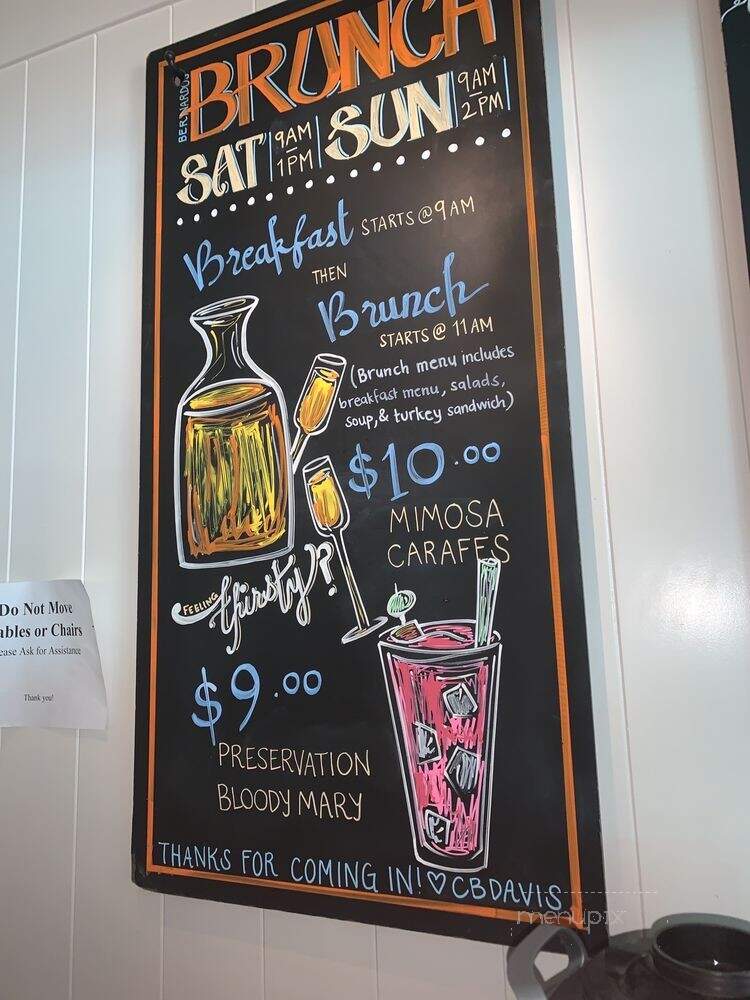 BRUNCH
SAT 9AM - 1PM SUN 9AM - 2PM
Breakfast STARTS @ 9AM
THEN
Brunch
STARTS @ 11AM
(Brunch menu includes
breakfast menu, salads,
soup, & turkey sandwich)
$10.00
MIMOSA
CARAFES
FEELING thirsty?
$9.00
PRESERVATION
BLOODY MARY
THANKS FOR COMING IN! ♡ CBDAVIS
Do Not Move
ables or Chairs
ease Ask for Assistance
Thank you!
menupix